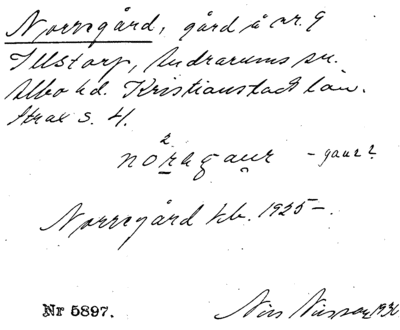 Norregård, gård å nr. 9
Illstorp, Andrarums sn.
Albo hd. Kristianstads län.
Strax S. 4.
2
noragaur - gaur?
Norregård kb. 1925-.
Nr 5897.
Nils Nilsson 1930